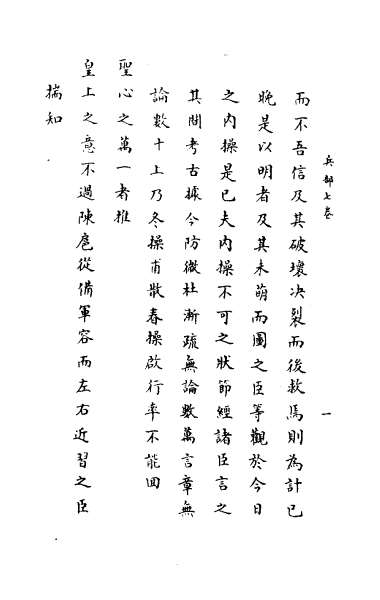 兵部七卷
一
而不吾信及其破壞決裂而後救焉則為計已
晚是以明者及其未萌而圖之臣等觀於今日
之內操是已夫內操不可之狀節經諸臣言之
其間考古據今防微杜漸疏無論數萬言章無
論數十上乃冬操甫散春操啟行率不能回
聖心之萬一者推
皇上之意不過陳扈從備軍容而左右近習之臣
揣知